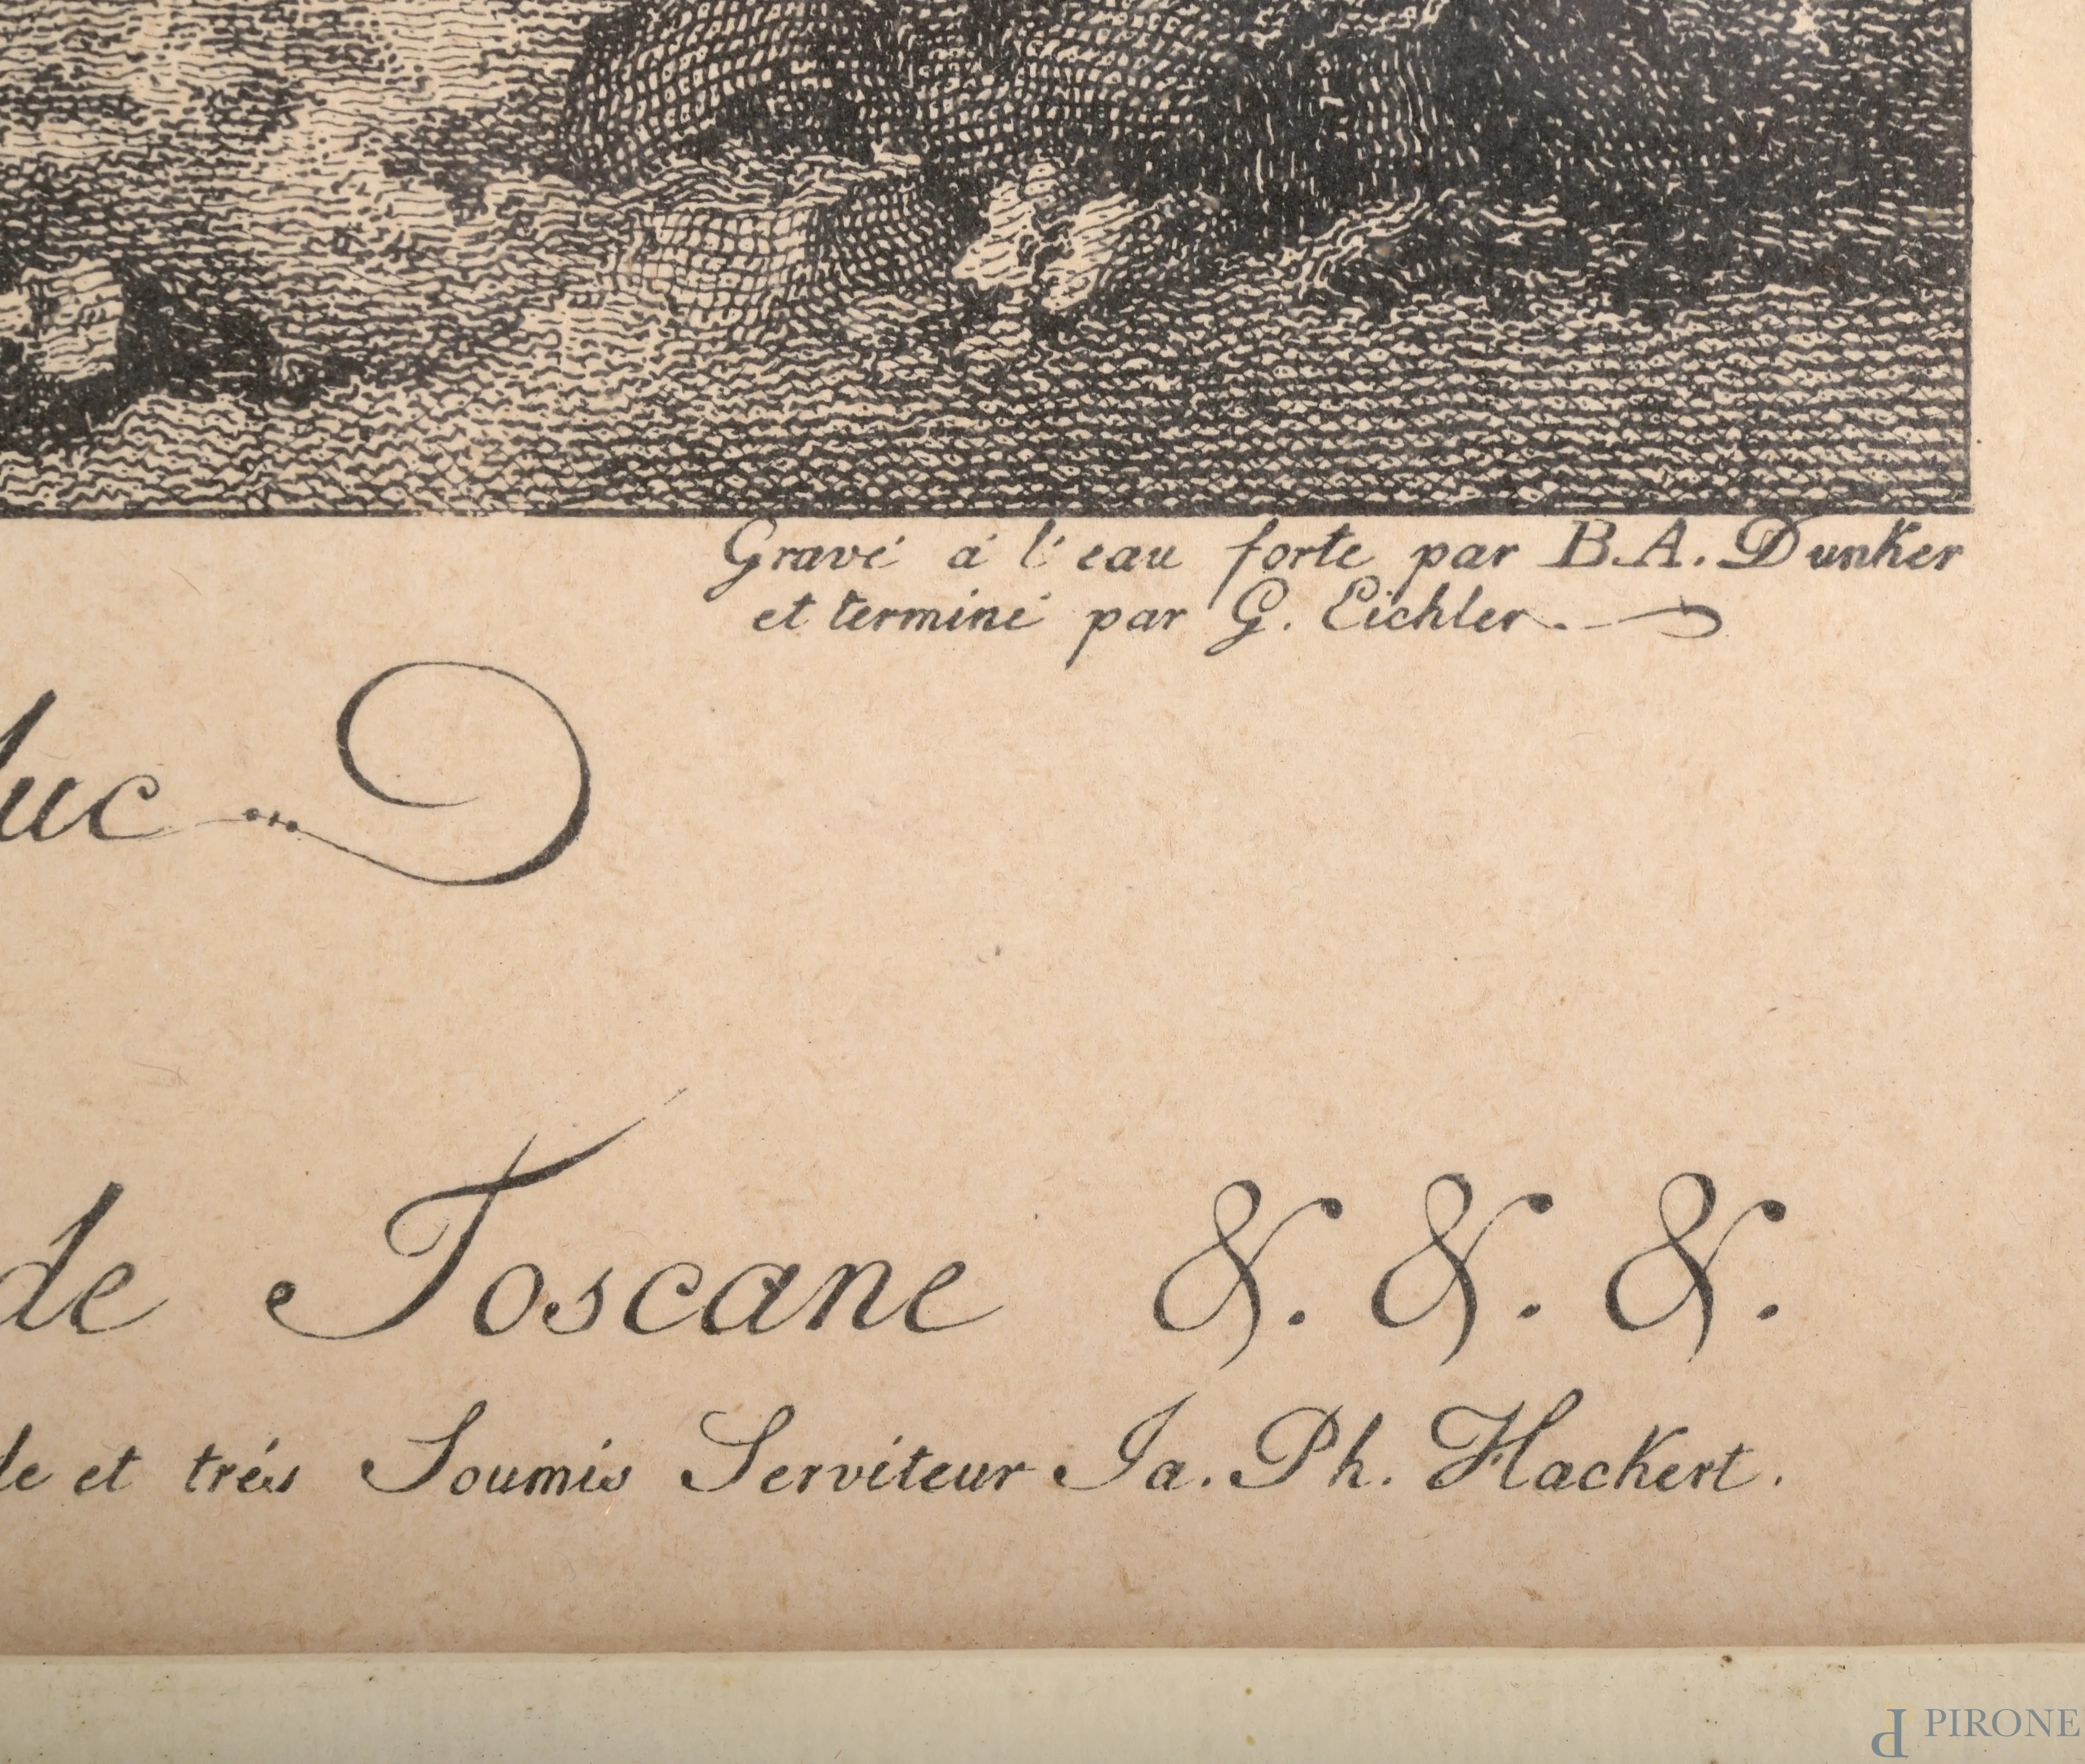 Gravé á l'eau forte par B.A. Dunker
et terminé par G. Eichler.
duc
de Toscane &. &. &.
de et trés Soumis Serviteur Ja. Ph. Hackert.
PIRONE